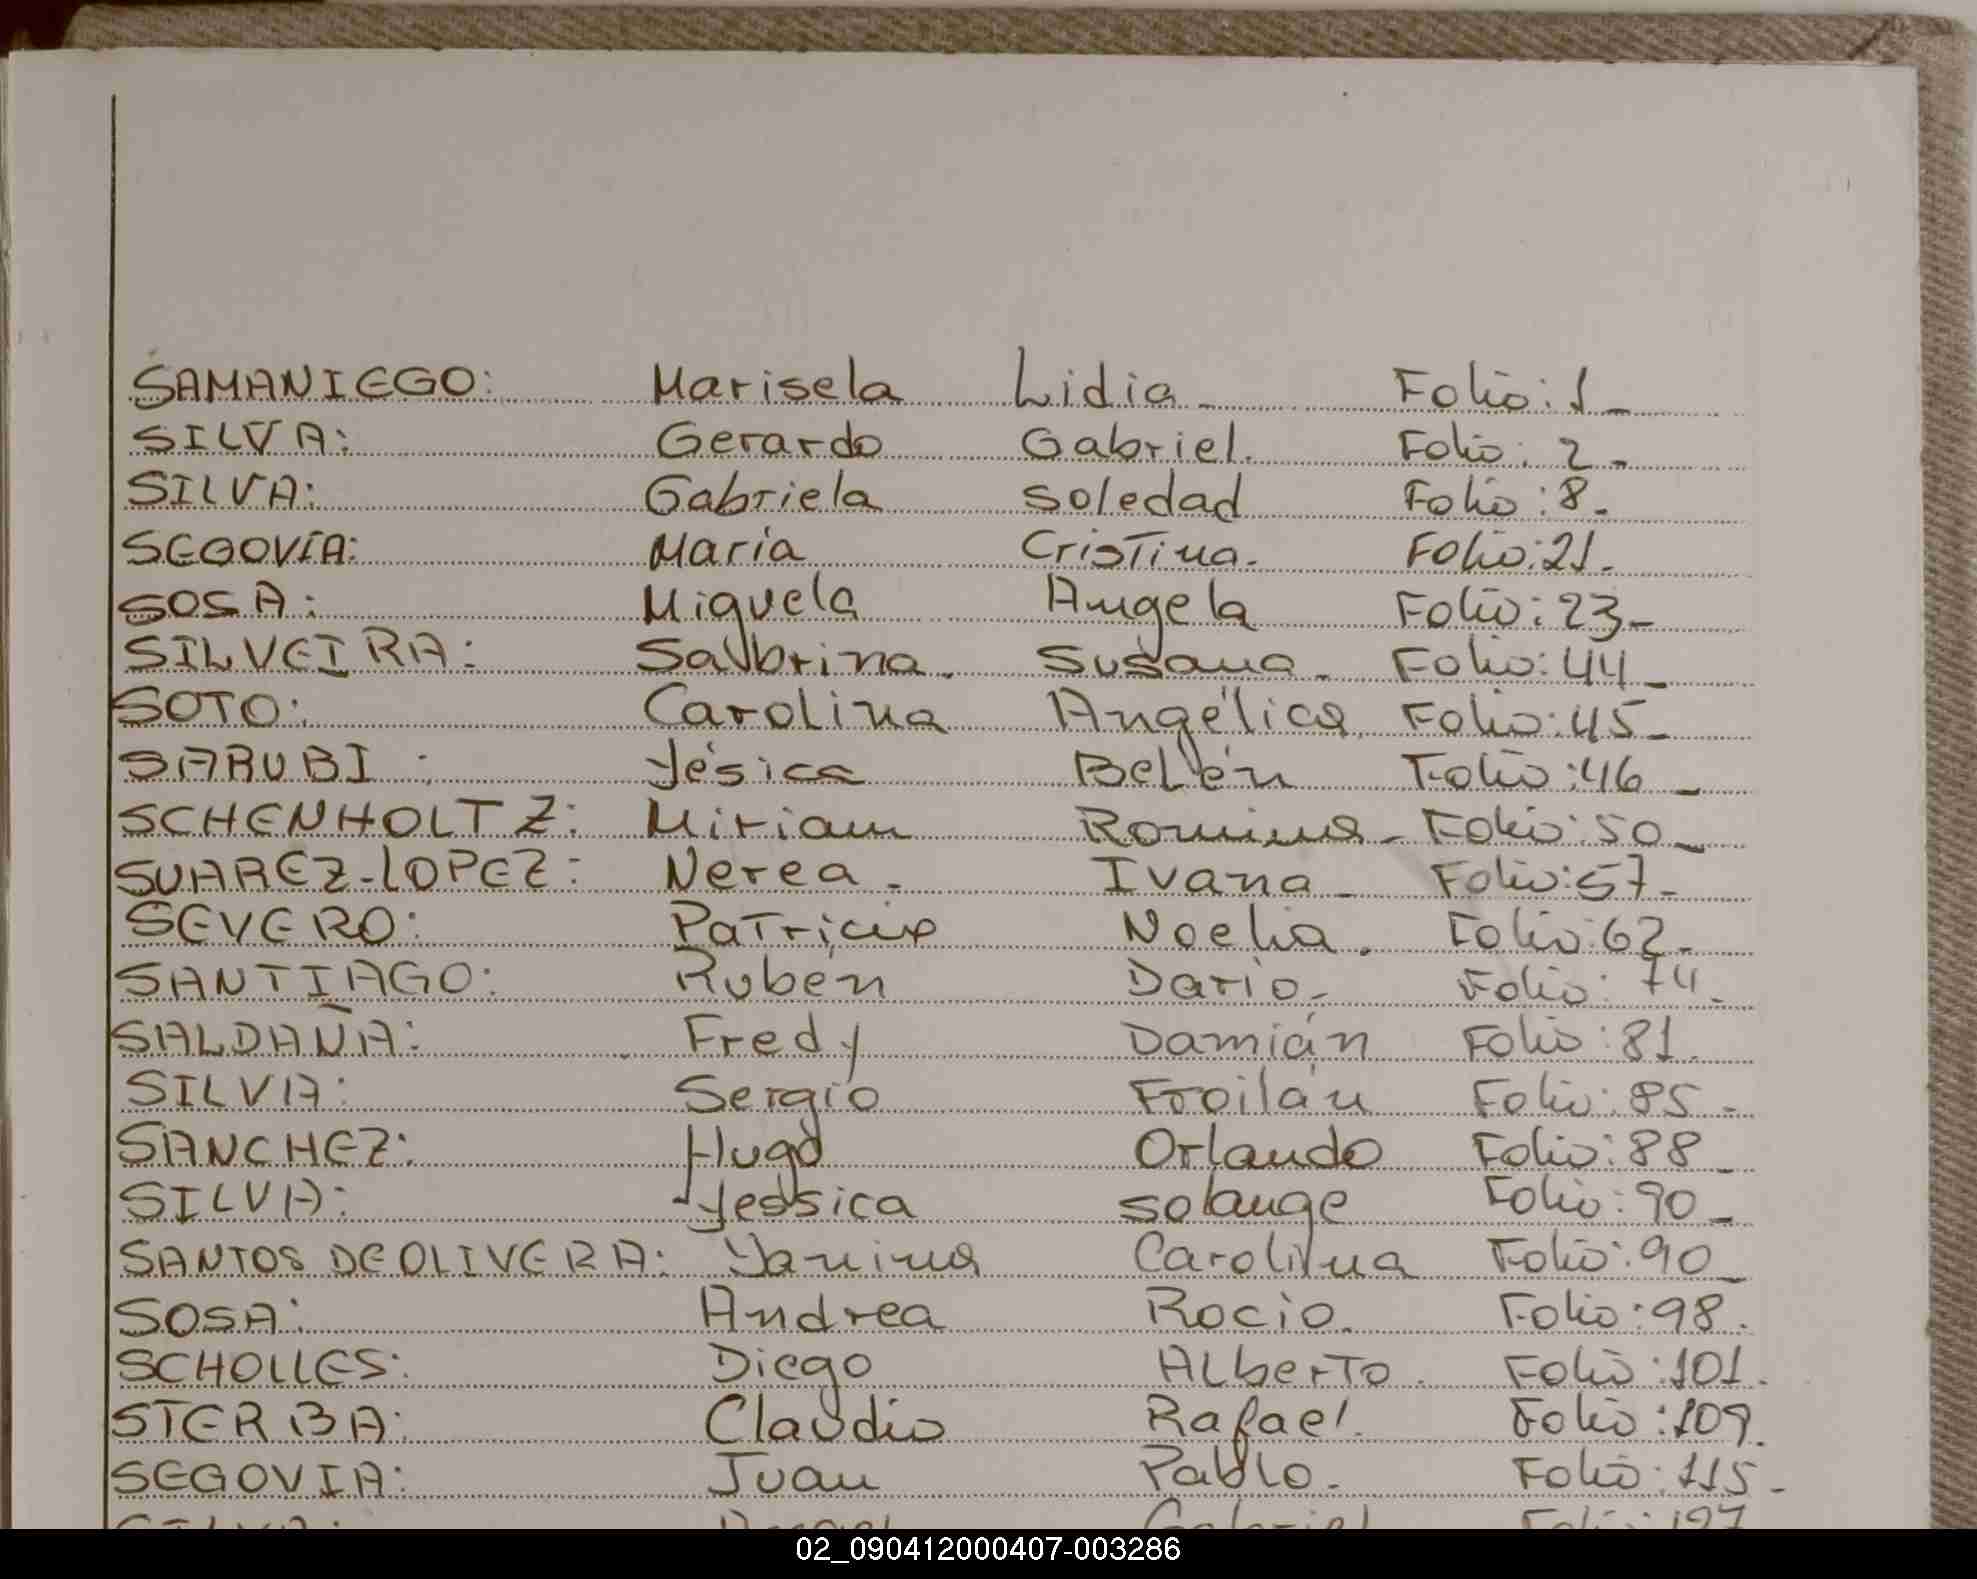 SAMANIEGO: Marisela Lidia Folio: 1
SILVA: Gerardo Gabriel. Folio: 2
SILVA: Gabriela Soledad Folio: 8.
SEGOVIA: María Cristina. Folio: 21.
SOSA: Miguela Angela Folio: 23
SILVEIRA: Sabrina. Susana. Folio: 44
SOTO: Carolina Angélica Folio: 45
SARUBI: Yésica Belén Folio: 46
SCHENHOLTZ: Miriam Romina Folio: 50
SUAREZ-LOPEZ: Nerea. Ivana Folio: 57
SEVERO: Patricia Noelia. Folio: 62
SANTIAGO: Rubén Dario. Folio: 74.
SALDAÑA: Fredy Damián Folio: 81.
SILVA: Sergio Froilán Folio: 85
SANCHEZ: Hugo Orlando Folio: 88
SILVA: Yessica Solange Folio: 90
SANTOS DE OLIVERA: Yanina Carolina Folio: 90
SOSA: Andrea Rocio. Folio: 98.
SCHOLLES: Diego Alberto. Folio: 101.
STERBA: Claudio Rafael. Folio: 109.
SEGOVIA: Juan Pablo. Folio: 115
SILVA: Gabriel
02_090412000407-003286